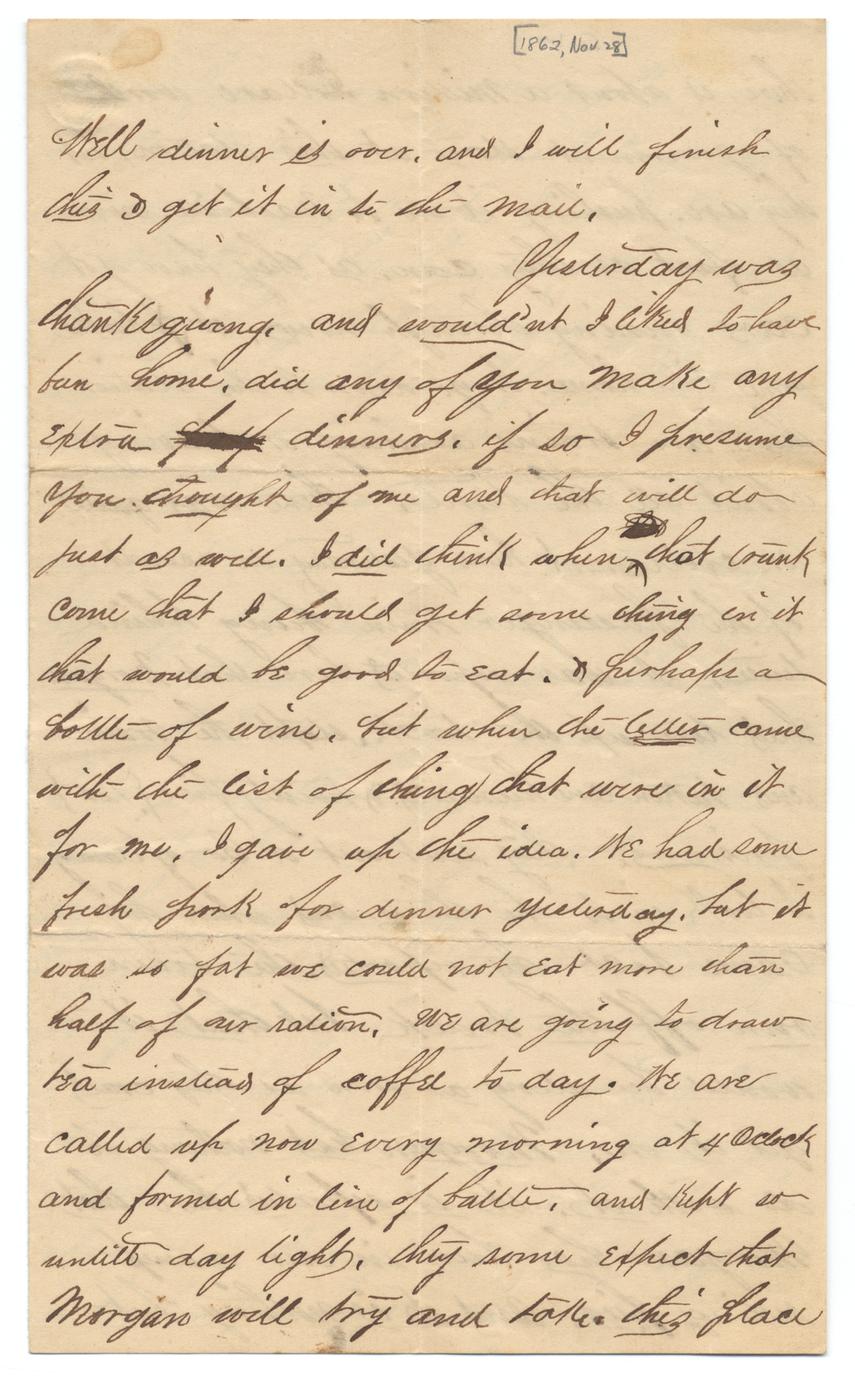 [1862, Nov. 28]
Well dinner is over. and I will finish
this & get it in to the mail.
Yesterday was
thanksgiving. and would'nt I liked to have
bun home. did any of you make any
extra dinners. if so I presume
you thought of me and that will do
just as well. I did think when that trunk
come that I should get some thing in it
that would be good to eat. & perhaps a
bottle of wine. but when the letter came
with the list of things that were in it
for me. I gave up the idea. We had some
fresh pork for dinner yesterday. but it
was so fat we could not eat more than
half of our ration. We are going to draw
tea instead of coffee to day. We are
called up now every morning at 4 Oclock
and formed in line of battle. and kept so
untill day light. they some expect that
Morgan will try and take this place